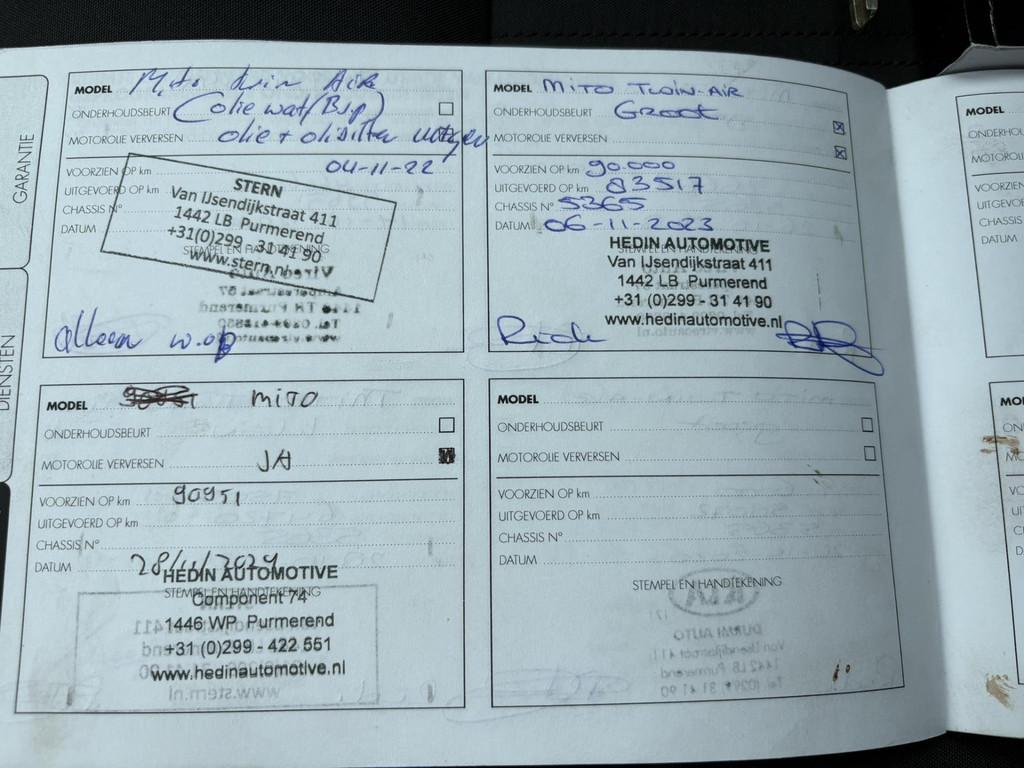 GARANTIE
DIENSTEN
MODEL Mito Twin Air
ONDERHOUDSBEURT (Olie wat/Bijp)
MOTOROLIE VERVERSEN olie + oliefilter
VOORZIEN OP km 04-11-22
UITGEVOERD OP km
CHASSIS N°
DATUM
STEMPEL EN HANDTEKENING
STERN
Van IJsendijkstraat 411
1442 LB Purmerend
+31(0)299 - 31 41 90
www.stern.nl
alleen w.op
MODEL MITO TWIN-AIR
ONDERHOUDSBEURT GROOT
MOTOROLIE VERVERSEN
VOORZIEN OP km 90.000
UITGEVOERD OP km 83517
CHASSIS N° 5365
DATUM 06-11-2023
HEDIN AUTOMOTIVE
Van IJsendijkstraat 411
1442 LB Purmerend
+31 (0)299 - 31 41 90
www.hedinautomotive.nl
MODEL MITO
ONDERHOUDSBEURT
MOTOROLIE VERVERSEN JA
VOORZIEN OP km 90951
UITGEVOERD OP km
CHASSIS N°
DATUM 28/11/2024
STEMPEL EN HANDTEKENING
HEDIN AUTOMOTIVE
Component 74
1446 WP Purmerend
+31 (0)299 - 422 551
www.hedinautomotive.nl
MODEL
ONDERHOUDSBEURT
MOTOROLIE VERVERSEN
VOORZIEN OP km
UITGEVOERD OP km
CHASSIS N°
DATUM
STEMPEL EN HANDTEKENING
MODEL
CHASSIS
DATUM